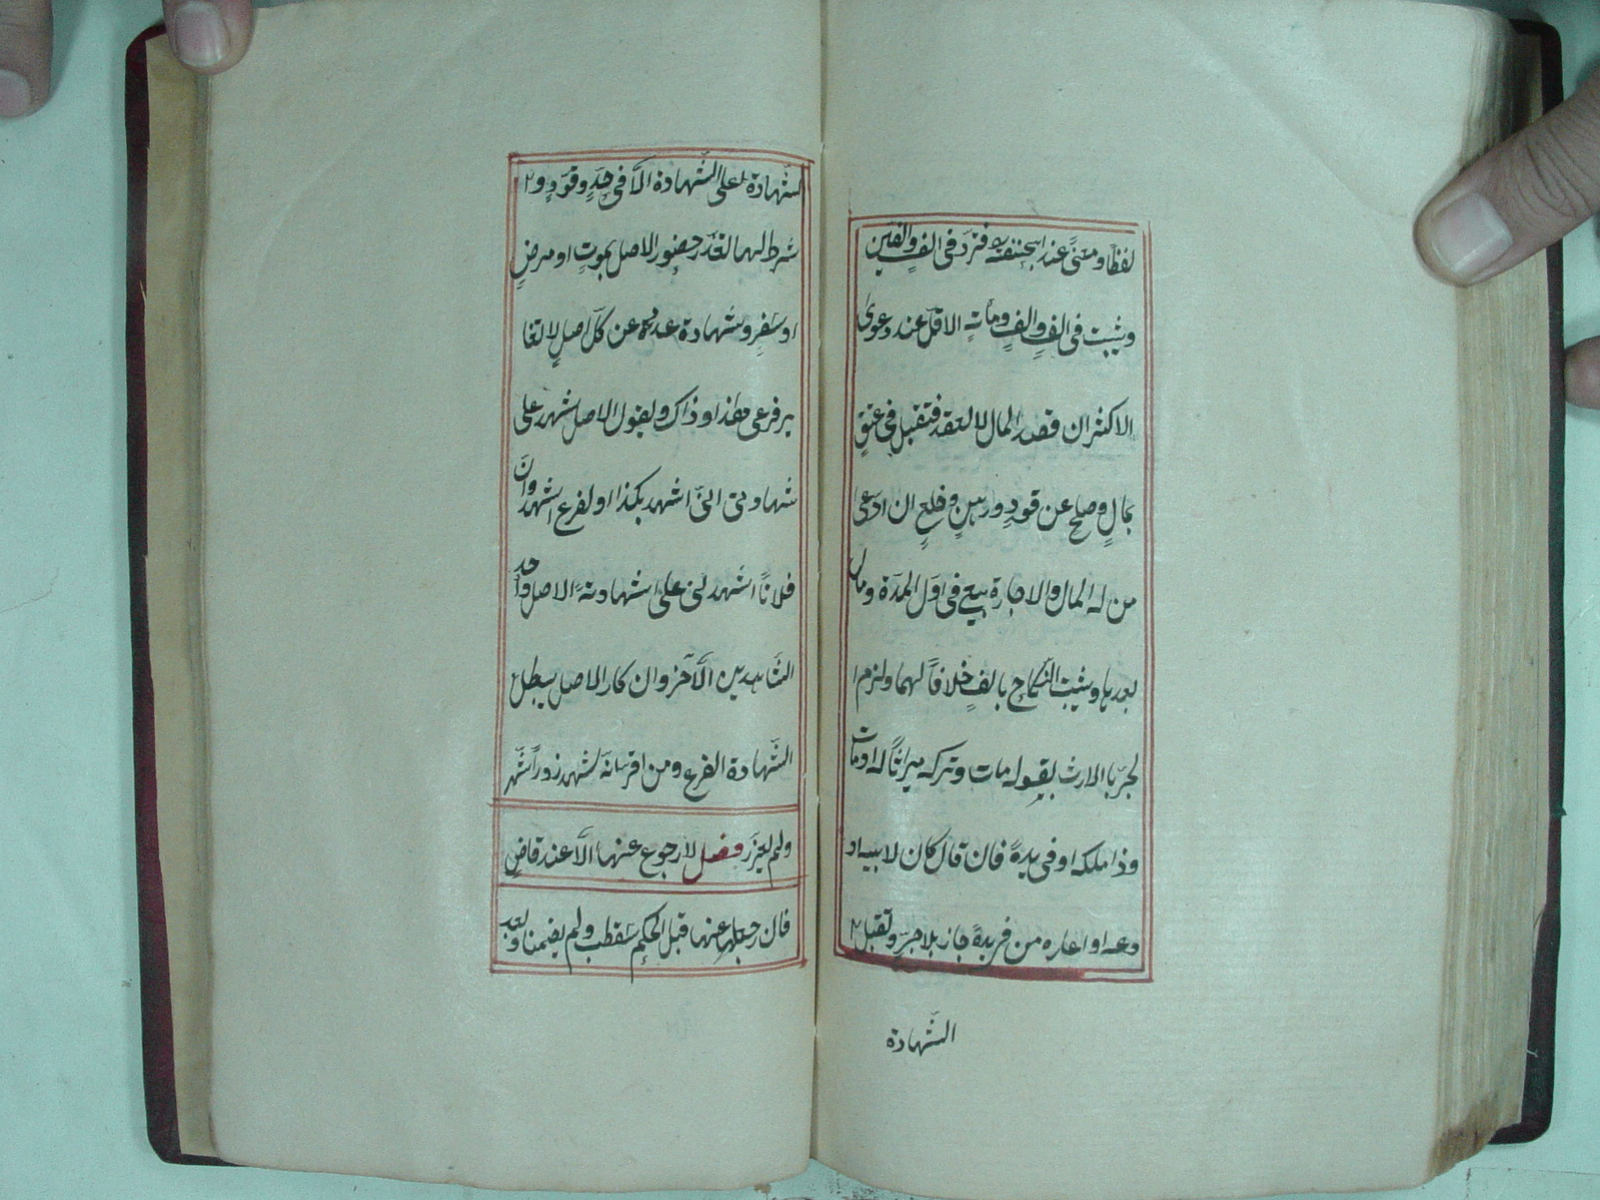 لفظا ومعنًى عند ابيحنيفة فترد فى الفٍ والفين
ويثبت فى الفٍ والفٍ ومأته الاقل عند دعوى
الاكثر ان قصد المال لا العقد فتقبل فى عتقٍ
بمالٍ وصلح عن قودٍ ورهنٍ وخلعٍ ان ادعى
من له المال والاجارة بيع فى اول المدة ومال
بعدها ويثبت النكاح بالفٍ خلافاً لهما ولزم
لجرّبا الارث بقوله مات وتركه ميراثاً له او مات
وذا ملكه او فى يده فان قال كان لابيه اد
دعه او اعاره من فى يده جاز بلا جرٍّ وتقبل
الشهادة
لشهادة على الشهادة الّا فى حدٍ وقودٍ و
شرط لهما تعذر حضور الاصل بموتٍ او مرضٍ
او سفرٍ وشهادة عددٍ عن كلّ اصلٍ لا تغا
ير فرعى هذا وذاك ويقول الاصل اشهد على
شهادتى انّى اشهد بكذا والفرع اشهد انّ
فلاناً اشهدنى على شهادته الاصل واحد
الشاهدين الآخر وان كار الاصل يبطل
الشهادة الفرع ومن اقر انّه شهد زوراً شهّر
ولم يعزّر فصل لا رجوع عنها الّا عند قاضٍ
فان رجعا عنها قبل الحكم سقطت ولم يضمنا وبعد